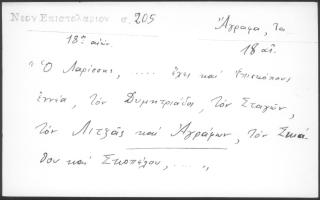 Νεον Επιστολαριον σ. 205
Ἄγραφα, τα
18ος αἰών.
18 αἰ.
"Ὁ Λαρίσσης, .... ἔχει καὶ ἐπισκόπους
ἐννέα, τὸν Δημητριάδος, τὸν Σταγῶν,
τὸν Λιτζᾶς καὶ Ἀγράφων, τὸν Σκιά
θου καὶ Σκοπέλου, .... "